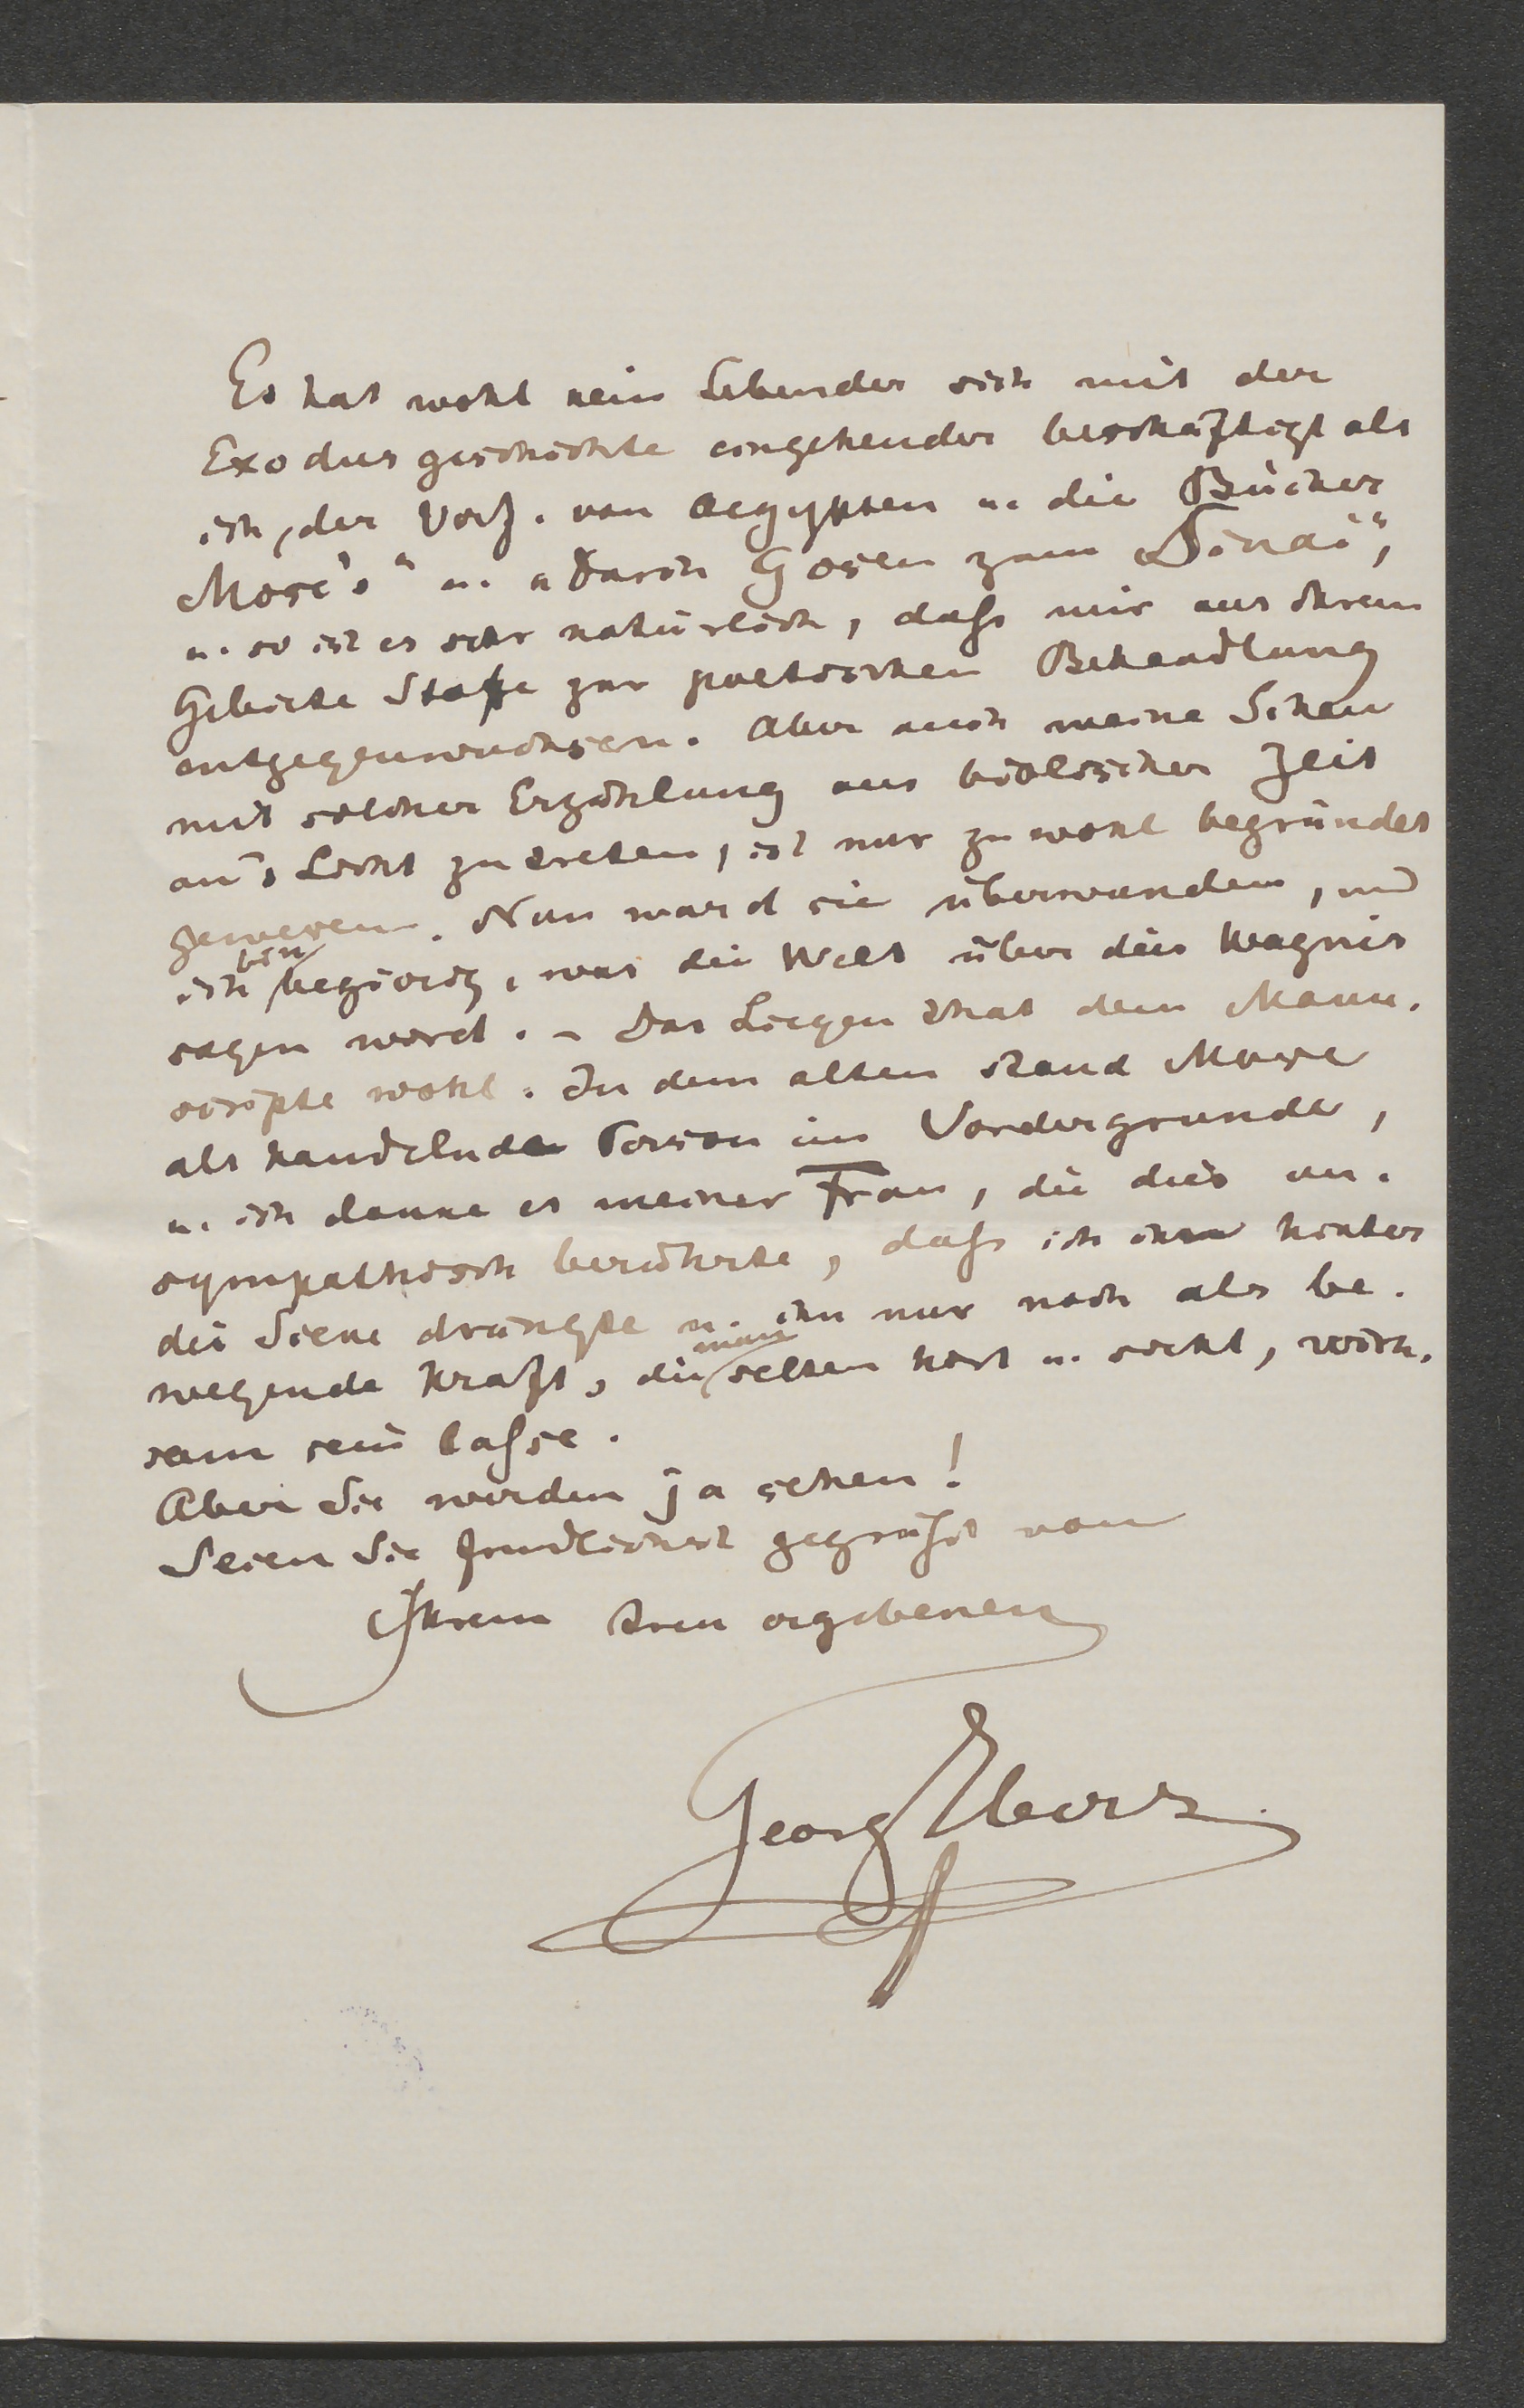 Es hat wohl kein Lebender sich mit der
Exodusgeschichte eingehender beschäftigt als
ich, der Verf. von Aegypten u. die Bücher
Mose's" u. „Durch Gosen zum Sinai",
u. so ist es sehr natürlich, daß mir aus ihrem
Gebiete Stoffe zur poetischen Behandlung
entgegenwuchsen. Aber auch meine Scheu
mit solcher Erzählung aus biblischer Zeit
an's Licht zu treten, ist nur zu wohl begründet
gewesen. Nun ward sie überwunden, und
ich bin begierig, was die Welt über dies Wagnis
sagen wird. – Das Liegen that dem Manu-
scripte wohl. In dem alten stand Mose
als handelnde Person im Vordergrunde,
u. ich danke es meiner Frau, die dies un-
sympathisch berührte, daß ich ihn hinter
die Scene drängte u. ihn nur noch als be-
wegende Kraft, die man selten hört u. sieht, wirk-
sam sein laße.
Aber Sie werden ja sehen!
Seien Sie freundlichst gegrüßt von
Ihrem treu ergebenen
Georg Ebers.